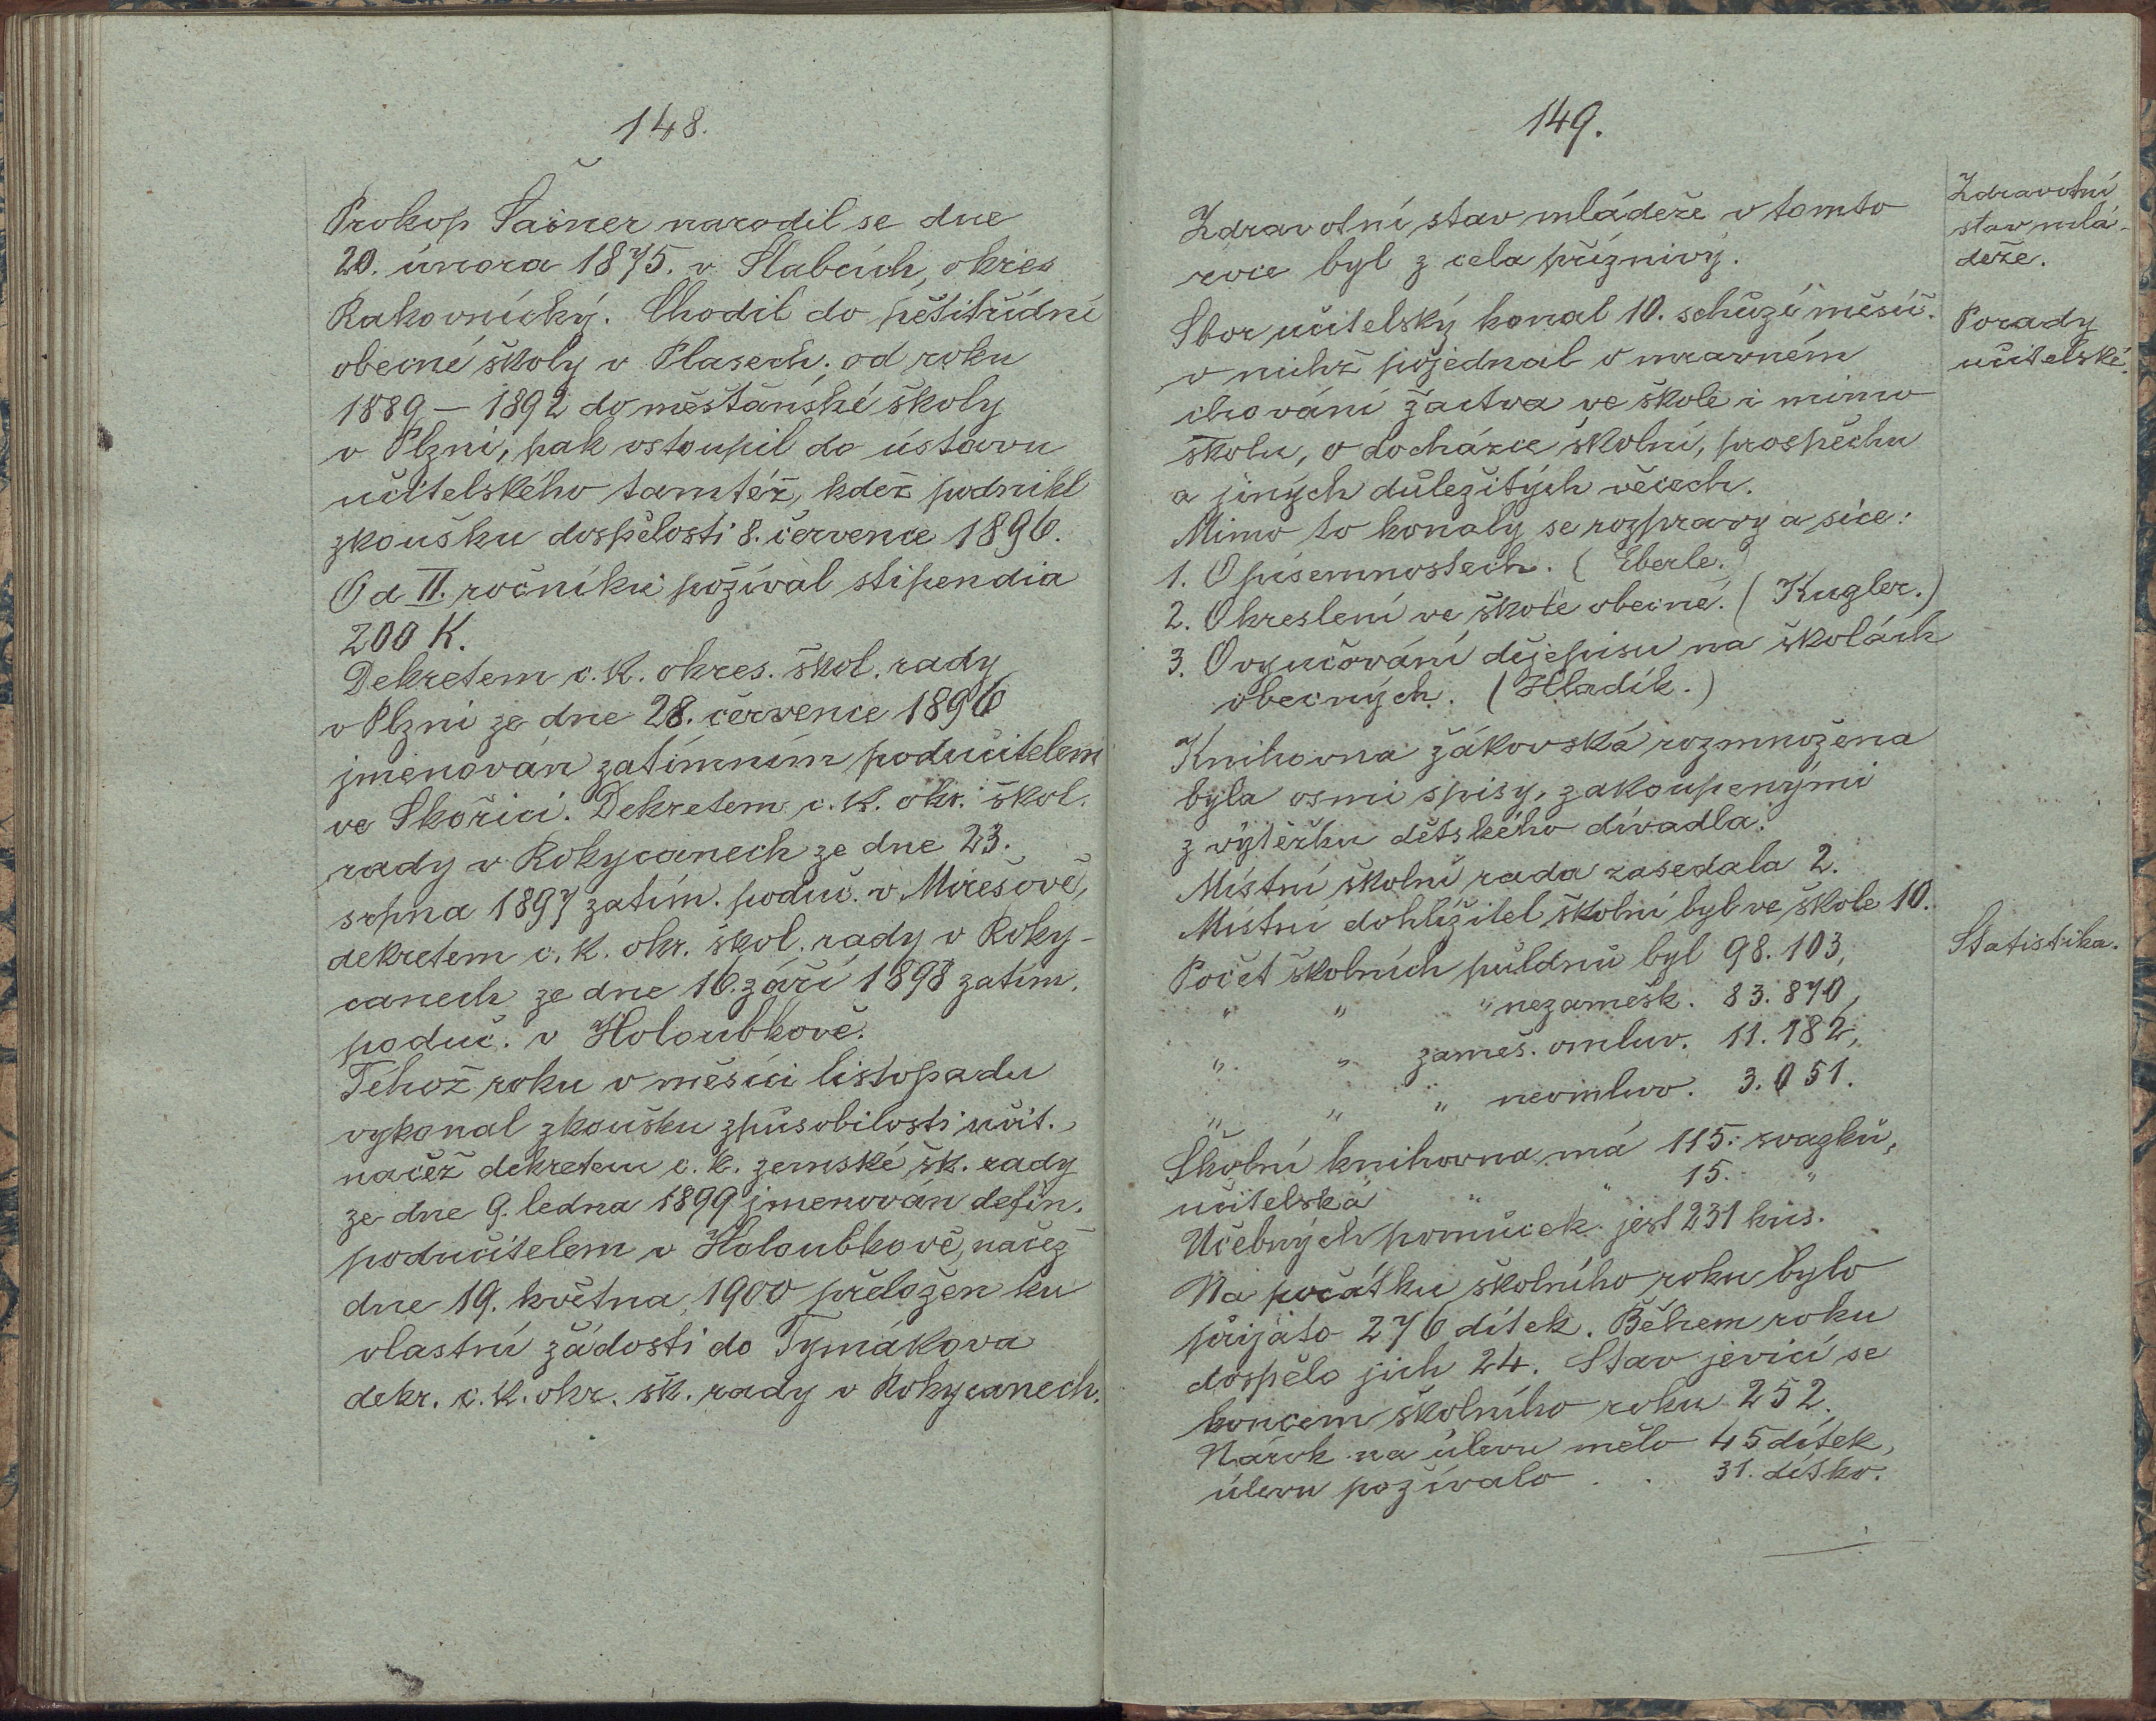 148.
Prokop Šašner narodil se dne
20. února 1875. v Slabcích, okres
Rakovnický. Chodil do pětitřídní
obecné školy v Plasech; od roku
1889 – 1892 do měšťanské školy
v Plzni, pak vstoupil do ústavu
učitelského tamtéž, kdež podnikl
zkoušku dospělosti 8. července 1896.
Od II. ročníku požíval stipendia
200 K.
Dekretem c. k. okres. škol. rady
v Plzni ze dne 28. července 1896
jmenován zatímním podučitelem
ve Skořici. Dekretem c. k. okr. škol.
rady v Rokycanech ze dne 23.
srpna 1897 zatím. poduč. v Mirešově,
dekretem c. k. okr. škol. rady v Roky-
canech ze dne 16. září 1898 zatím.
poduč. v Holoubkově.
Tehož roku v měsíci listopadu
vykonal zkoušku způsobilosti učit.,
načež dekretem c. k. zemské šk. rady
ze dne 9. ledna 1899 jmenován defin.
podučitelem v Holoubkově, načež
dne 19. května 1900 přeložen ku
vlastní žádosti do Tymákova
dekr. c. k. okr. šk. rady v Rokycanech.
149.
Zdravotní
stav mlá-
deže.
Zdravotní stav mládeže v tomto
roce byl z cela příznivý.
Porady
učitelské.
Sbor učitelský konal 10. schůzí měsíč.
v nichž pojednal o mravném
chování žactva ve škole i mimo
školu, o docházce školní, prospěchu
a jiných důležitých věcech.
Mimo to konaly se rozpravy a sice:
1. O písemnostech. (Eberle.)
2. O kreslení ve škole obecné. (Kugler.)
3. O vyučování dějepisu na školách
obecných. (Hladík.)
Knihovna žákovská rozmnožena
byla osmi spisy, zakoupenými
z výtěžku dětského divadla.
Místní školní rada zasedala 2.
Místní dohlížitel školní byl ve škole 10.
Statistika.
Počet školních půldnů byl 98.103,
" " " nezamešk. 83.870,
" " zameš. omluv. 11.182,
" " " neomluv. 3.051.
Školní knihovna má 115. svazků,
učitelská " " 15. "
Učebných pomůcek jest 231 kus.
Na počátku školního roku bylo
přijato 276 dítek. Během roku
dospělo jich 24. Stav jevící se
koncem školního roku 252.
Nárok na úlevu mělo 45 dítek,
úlevu požívalo . . 31. dítko.